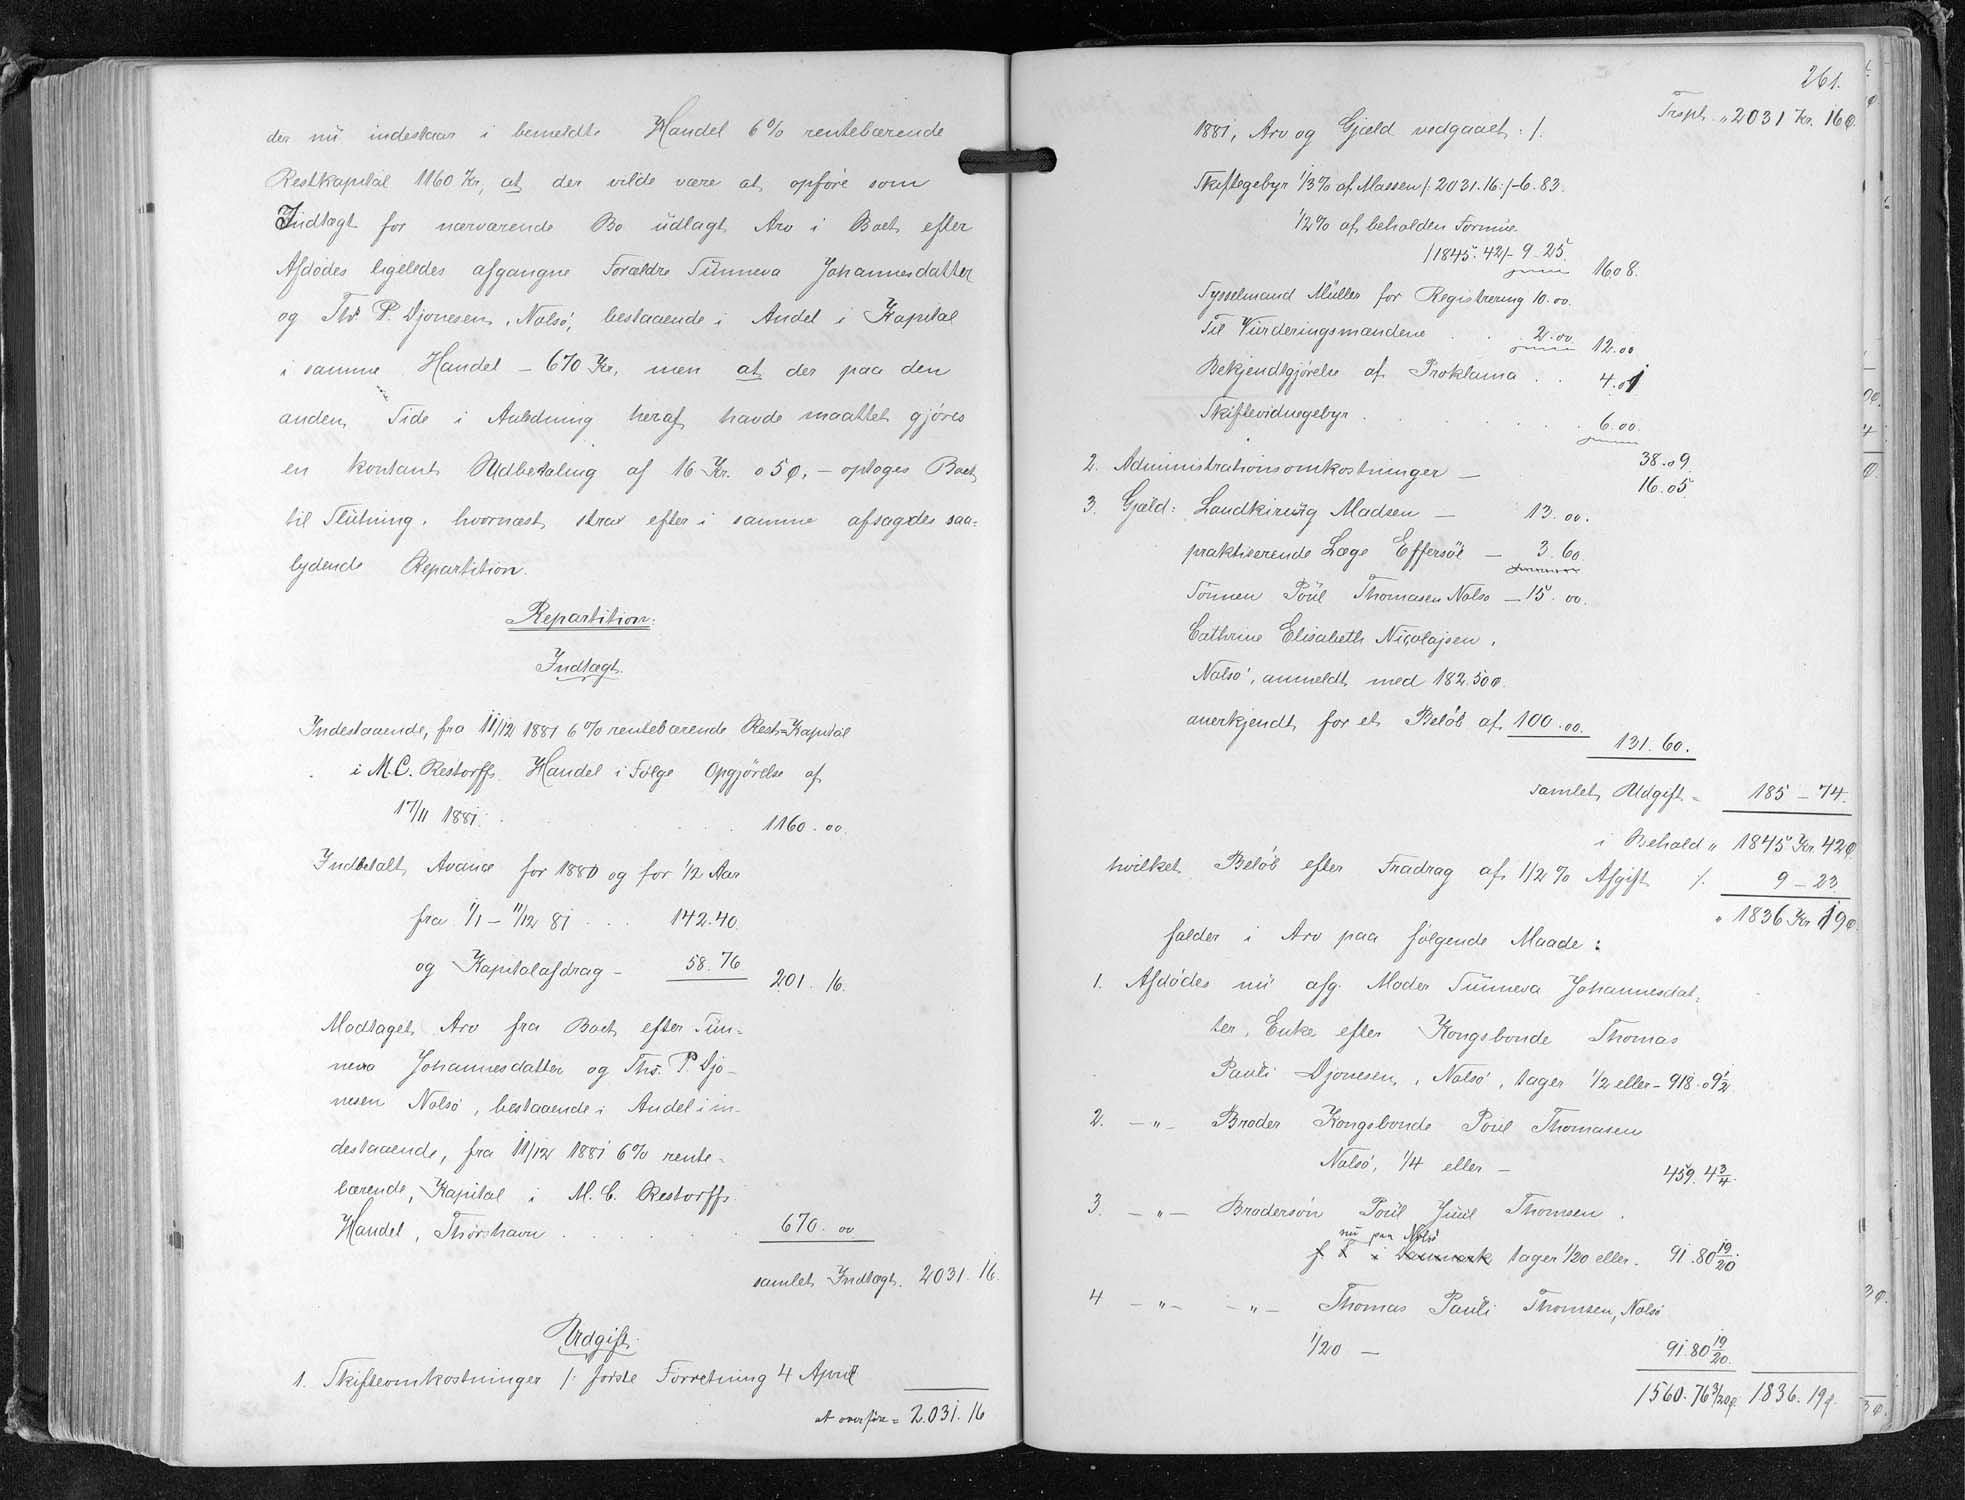 der nu indestaar i bemeldte Handel 6% rentebærende
Restkapital 1160 Kr, at der vilde være at opføre som
Indtægt for nærværende Bo udlagt Arv i Boet efter
Afdødes ligeledes afgangne Forældre Sünneva Johannesdatter
og Ths P. Djonesen, Nolsö, bestaaende i Andel i Kapital
i samme Handel – 670 Kr, men at der paa den
anden Side i Anledning heraf havde maattet gjøres
en kontant Udbetaling af 16 Kr. 05 Ø. – optoges Boet
til Slutning, hvornæst strax efter i samme afsagdes saa-
lydende Repartition.
Repartition:
Indtægt.
Indestaaende, fra 11/12 1881 6% rentebærende Rest-Kapital
i M.C. Restorffs Handel i Følge Opgjørelse af
17/11 1881. 1160.00.
Indbetalt Avance for 1880 og for 1/2 Aar
fra 1/1 – 11/12 81 . . . 142.40.
og Kapitalafdrag – 58.76 201.16.
Modtaget Arv fra Boet efter Sün-
neva Johannesdatter og Ths. P. Djo-
nesen Nolsö, bestaaende i Andel i in-
destaaende, fra 11/12 1881 6% rente-
bærende, Kapital i M. C. Restorffs
Handel, Thorshavn . . . . . 670.00
samlet Indtægt. 2031.16.
Udgift.
1. Skifteomkostninger /: første Forretning 4 April
at overføre = 2.031.16
261.
Trspt. „ 2031 Kr. 16 Ø.
1881, Arv og Gjæld vedgaaet :/.
Skiftegebyr 1/3% af Massen /: 2031.16:/ - 6.83.
1/2% af beholden Formue
/1845.42/- 9-25.
16.08.
Sysselmand Müller for Registrering 10.00.
Til Vurderingsmændene . . 2.00. 12.00
Bekjendtgjørelse af Proklama . . 4.01
Skiftevidnegebyr . . . . . . 6.00.
38.09
2. Administrationsomkostninger – 16.05
3. Gjæld: Landkirurg Madsen – 13.00.
praktiserende Læge Effersöe – 3.60.
Sönnen Poul Thomasen Nolsö – 15.00.
Cathrine Elisabeth Nicolajsen,
Nolsö, anmeldt med 182.50 Ø.
anerkjendt for et Beløb af 100.00.
131.60.
samlet Udgift = 185 – 74.
i Behold „ 1845 Kr. 42 Ø
hvilket Beløb efter Fradrag af 1/2% Afgift /. 9 – 23.
„ 1836 Kr 19 Ø
falder i Arv paa følgende Maade:
1. Afdødes nu afg. Moder Sünneva Johannesdat-
ter, Enke efter Kongsbonde Thomas
Pauli Djonesen, Nolsö, tager 1/2 eller – 918.09 1/2.
2. – „ – Broder Kongsbonde Poul Thomasen
Nolsö, 1/4 eller – 459.4 3/4.
3. – „ – Brodersön Poul Juul Thomsen.
nu paa Nolsö
i Danmark tager 1/20 eller. 91.80 19/20.
4 – „ – – „ – Thomas Pauli Thomsen, Nolsö
1/20 – 91.80 19/20.
1560.76 3/20 Ø. 1836.19 Ø.